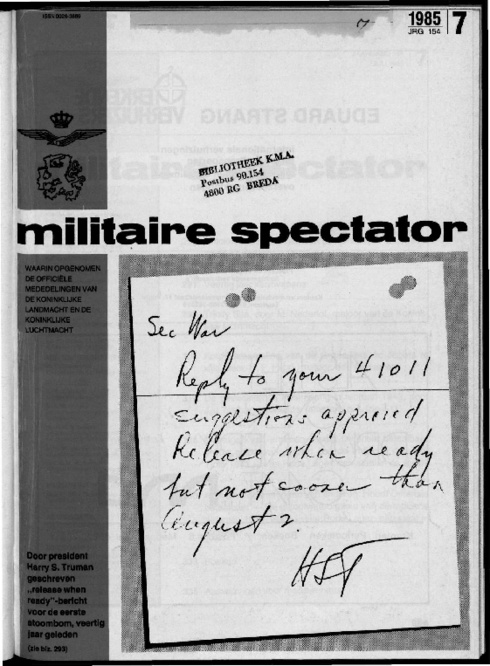 ISSN 0026-3869
7
1985 7
JRG 154
BIBLIOTHEEK K.M.A.
Postbus 90.154
4800 RG BREDA
militaire spectator
WAARIN OPGENOMEN
DE OFFICIËLE
MEDEDELINGEN VAN
DE KONINKLIJKE
LANDMACHT EN DE
KONINKLIJKE
LUCHTMACHT
Sec War
Reply to your 41011
suggestions approved
Release when ready
but not sooner than
August 2.
HST
Door president
Harry S. Truman
geschreven
„release when
ready”-bericht
voor de eerste
atoombom, veertig
jaar geleden
(zie blz. 293)
EDUARD STRANG
ERKENDE
VERHUIZERS